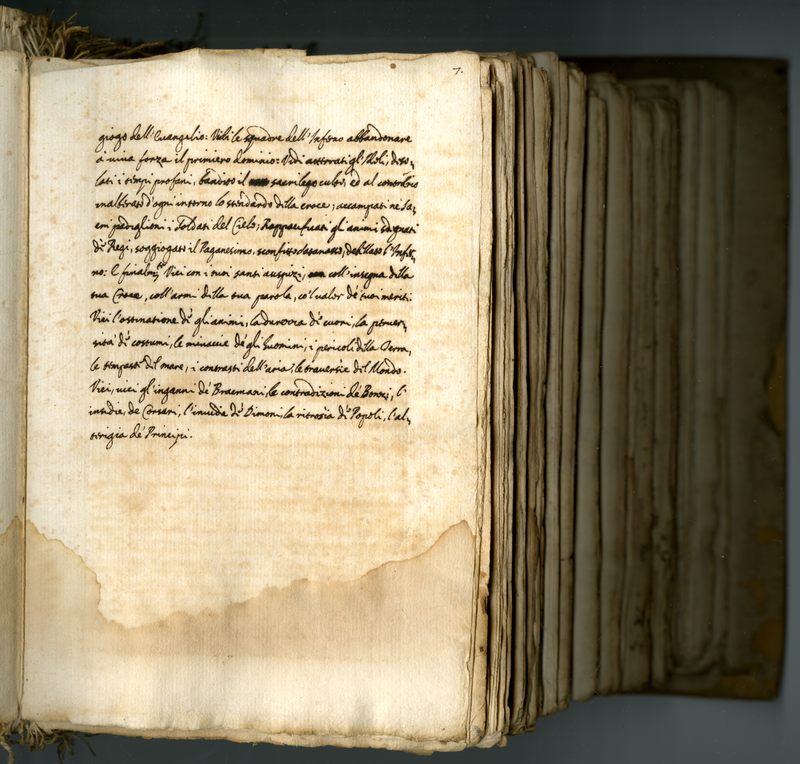 7.
giogo dell'Evangelio: Vidi le squadre dell'Inferno abbandonare
à viva forza il primiero dominio: Vedi atterrati gl'Idoli, diso,
lati i tempi profani, bandito il sacrilego culto, ed al contrario
inalberato d'ogni intorno lo stendardo della croce; accampati ne Sa,
cri padiglioni i Soldati del Cielo; Rappacificati gli animi sdegnati
dè Regi, soggiogato il Paganesimo, sconfitto satanasso, debellato l'Infer,
no: E finalm.te Vici con i tuoi santi auspizi, coll'insegna della
tua Croce, coll'armi della tua parola, co'l valor dè tuoi meriti:
Vici l'ostinatione dè gli animi, la durezza dè cuori, la perver,
sità dè costumi, le minaccie dè gli huomini, i pericoli della Terra,
le tempeste del mare, i contrasti dell'aria, le traversie del Mondo.
Vici, vici gl'inganni dè Bracmani, le contradizioni dè Bonzi, l'
insidie, de Corsari, l'invidia dè Dimoni, la ritrosia dè Popoli, l'al,
terigia dè Principi.